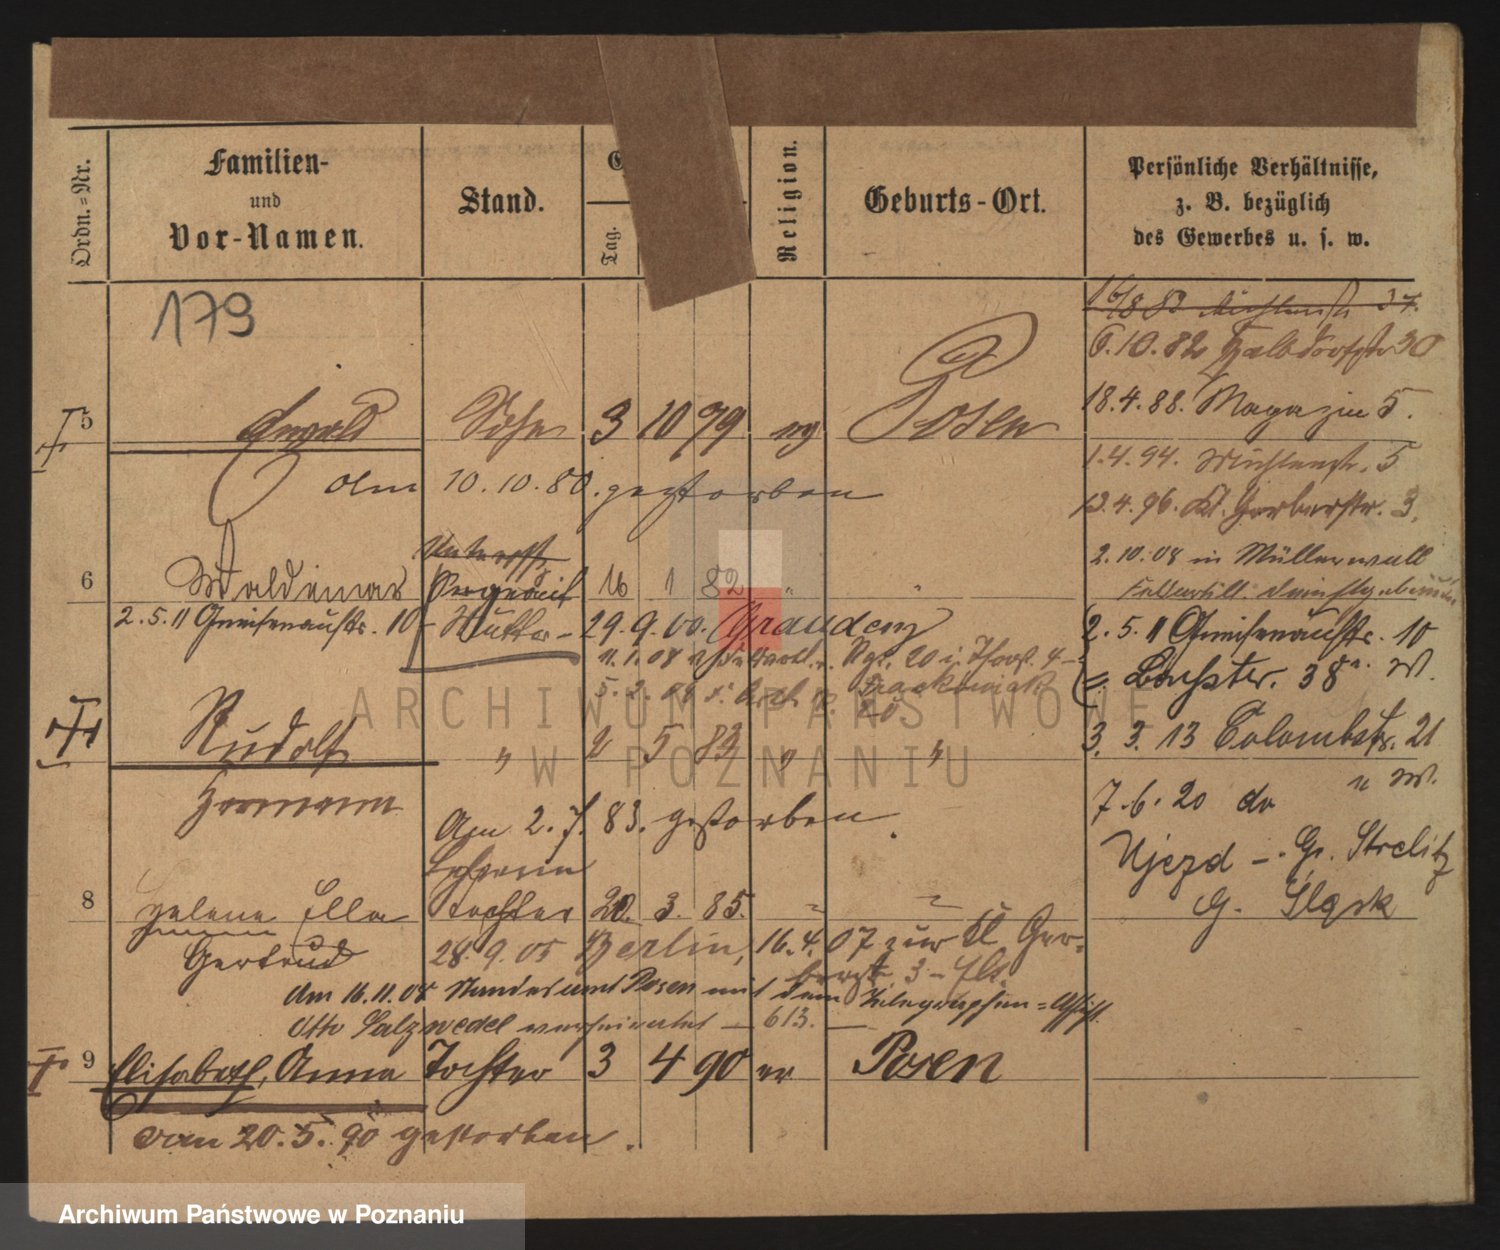 Ordn.=Nr.
Familien-
und
Vor-Namen.
Stand.
G
Tag.
Religion.
Geburts-Ort.
Persönliche Verhältnisse,
z. B. bezüglich
des Gewerbes u. s. w.
179
16/8 83 37.
6.10.82 Halbdorfstr 30
18.4.88. Magazin 5.
5 Ewald Sohn 3 10 79 ev Posen
1.4.94. Mühlenstr. 5
am 10.10.80. gestorben
13.4.96. Kl. Gerberstr. 3.
2.10.08 in Müllerwall
6 Waldemar 16 1 82 " "
2.5.11 Gneisenaustr. 10 - Mutter - 29.9.00. Graudenz
2.5.11 Gneisenaustr. 10
11.1.08 Rgt. 20 i. 4
38 W.
Rudolf " 2 5 83 " "
3. 3. 13 Colombstr. 21
Hermann
" W.
7.6.20 do
Am 2.7.83. gestorben.
Ujezd - Gr. Strelitz
Lehrerin
G. Śląsk
8 Helene Ella Tochter 20. 3. 85. " "
Gertrud 28.9.05 Berlin, 16.4.07 zur Kl Ger-
berstr 3 -
Am 16.11.08 Standesamt Posen mit dem Telegraphen=Assist.
Otto Salzwedel verheiratet - 613. -
9 Elisabeth, Anna Tochter 3 4 90 ev Posen
am 20.5.90 gestorben.
ARCHIWUM PAŃSTWOWE
W POZNANIU
Archiwum Państwowe w Poznaniu